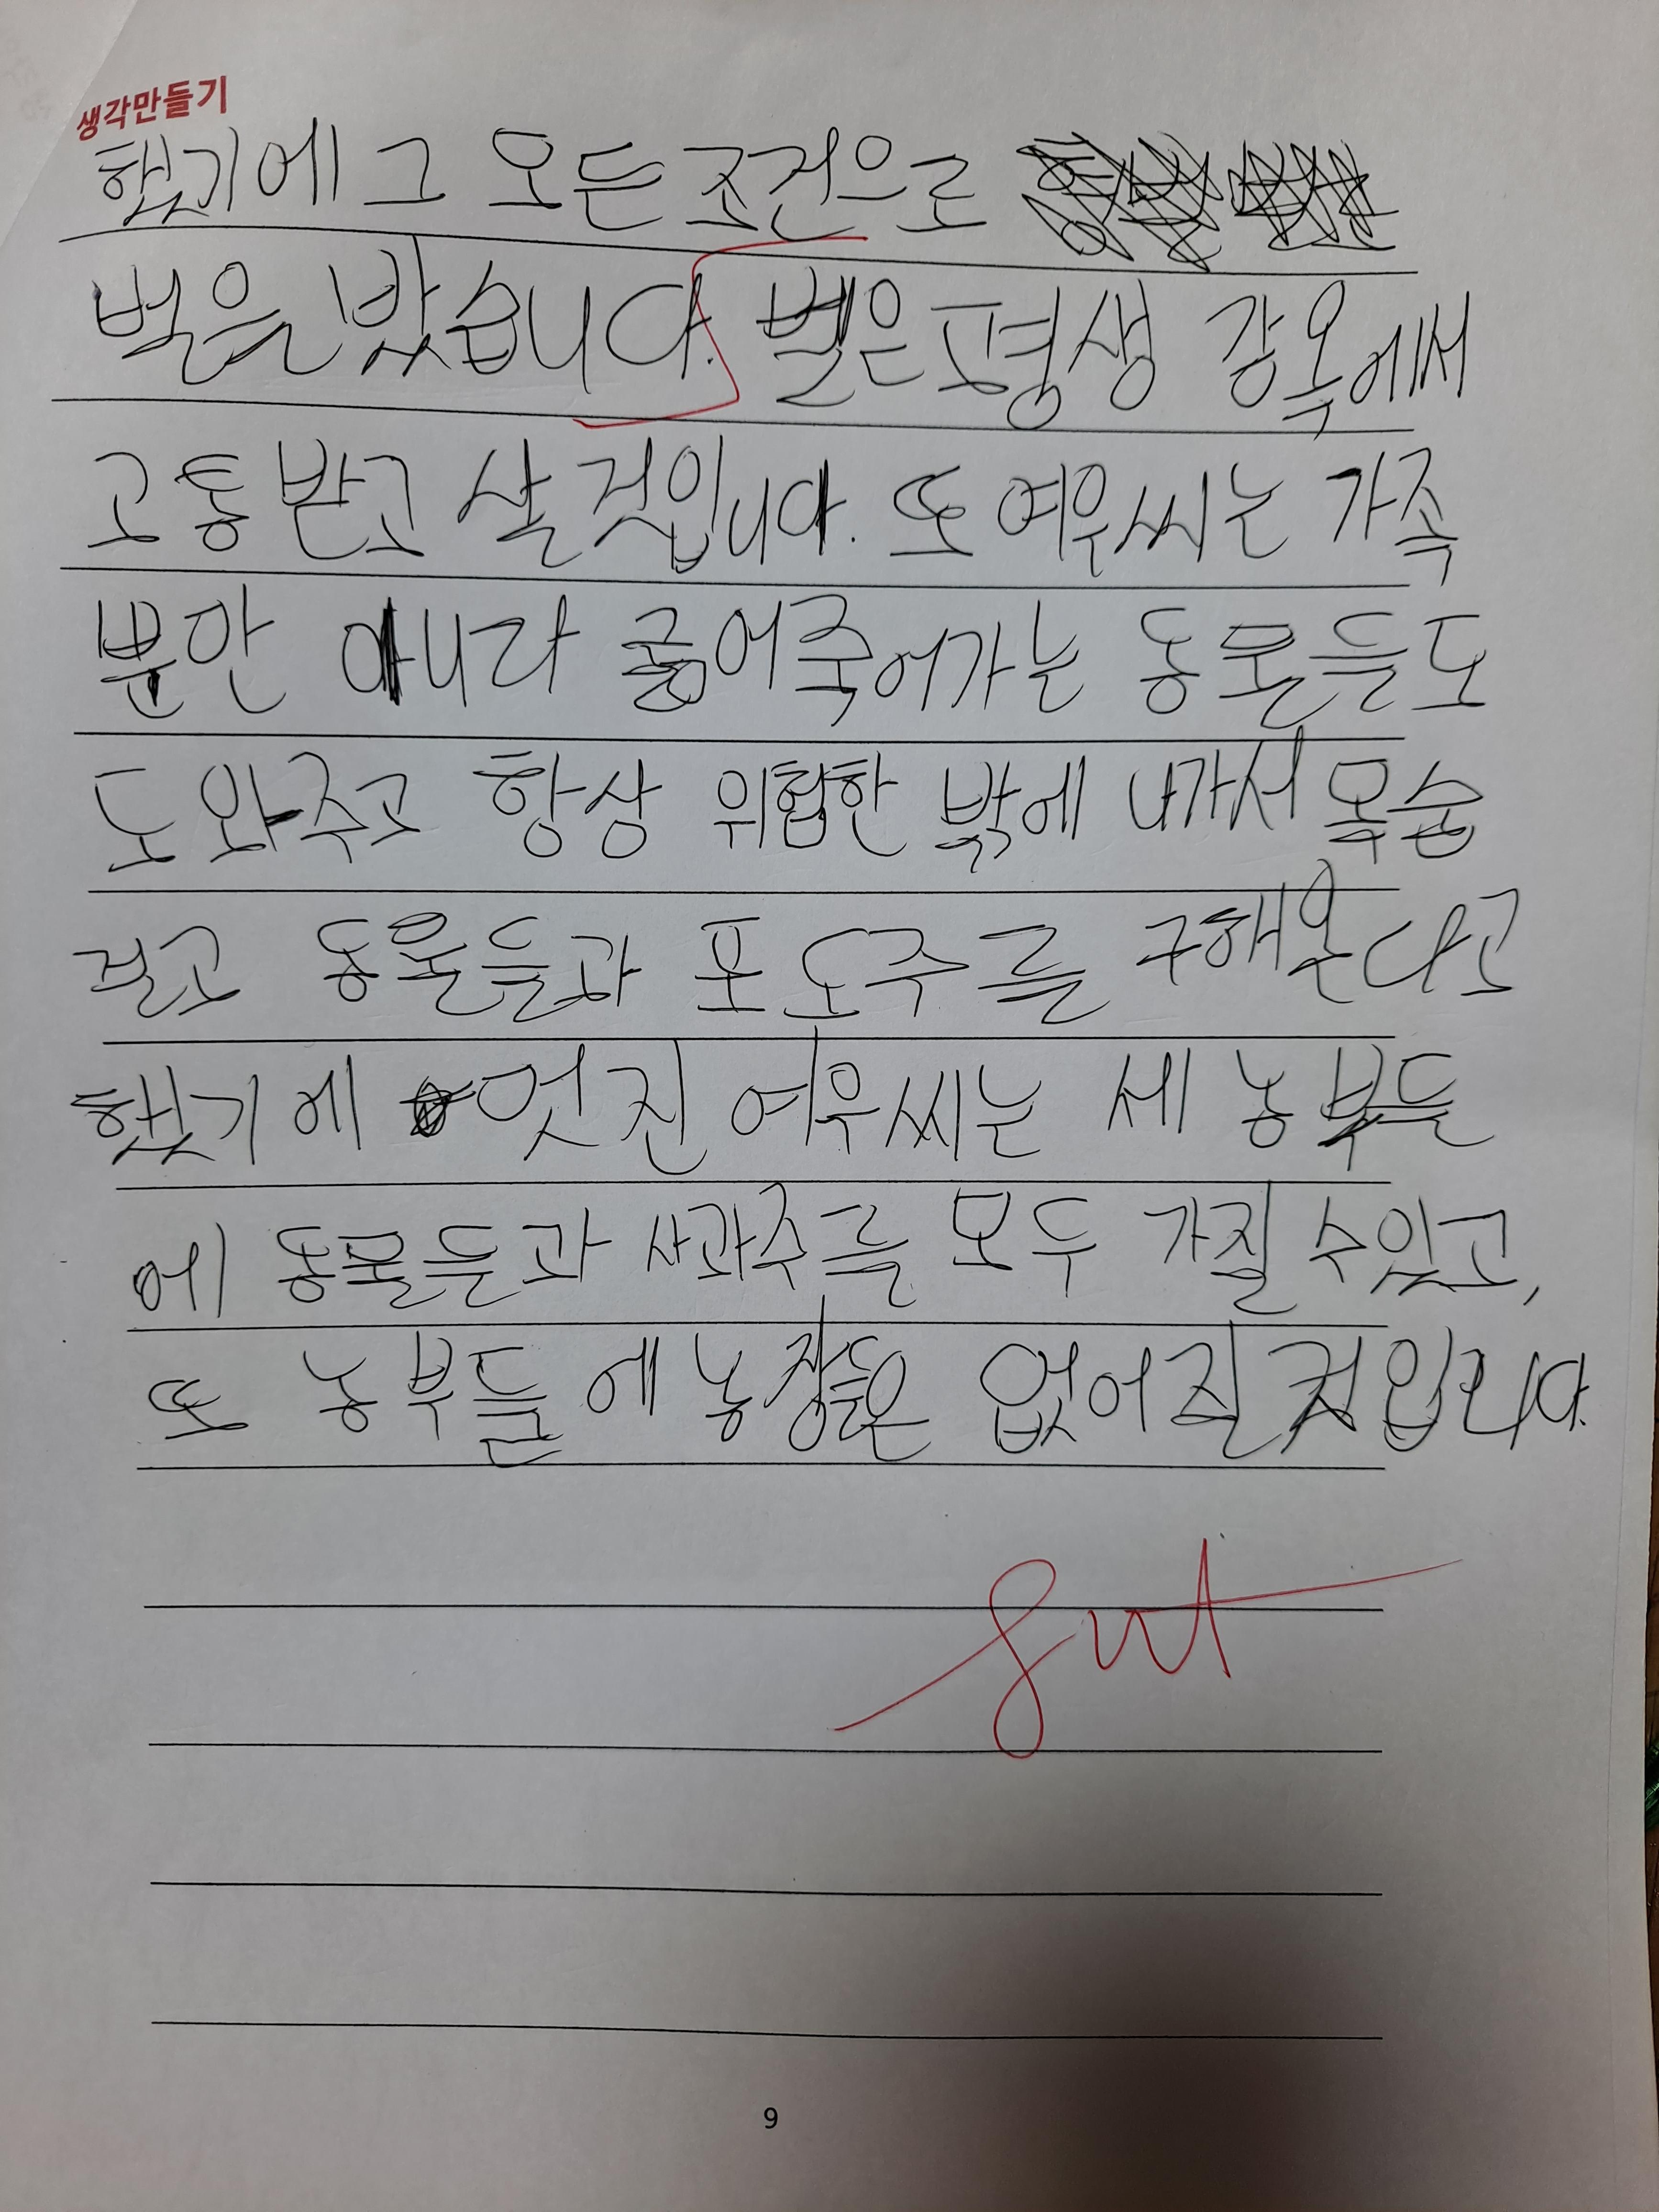 생각만들기
했기에 그 모든 조건으로
벌을 받습니다. 벌은 평생 감옥에서
고통 받고 살 것입니다. 또 여우씨는 가족
뿐만 아니라 굶어죽어가는 동물들도
도와주고 항상 위협한 밖에 나가서 목숨
걸고 동물들과 포도주를 구해온다고
했기에 멋진 여우씨는 세 농부들
에 동물들과 사과주를 모두 가질 수있고,
또 농부들에 농장들은 없어질 것입니다.
9